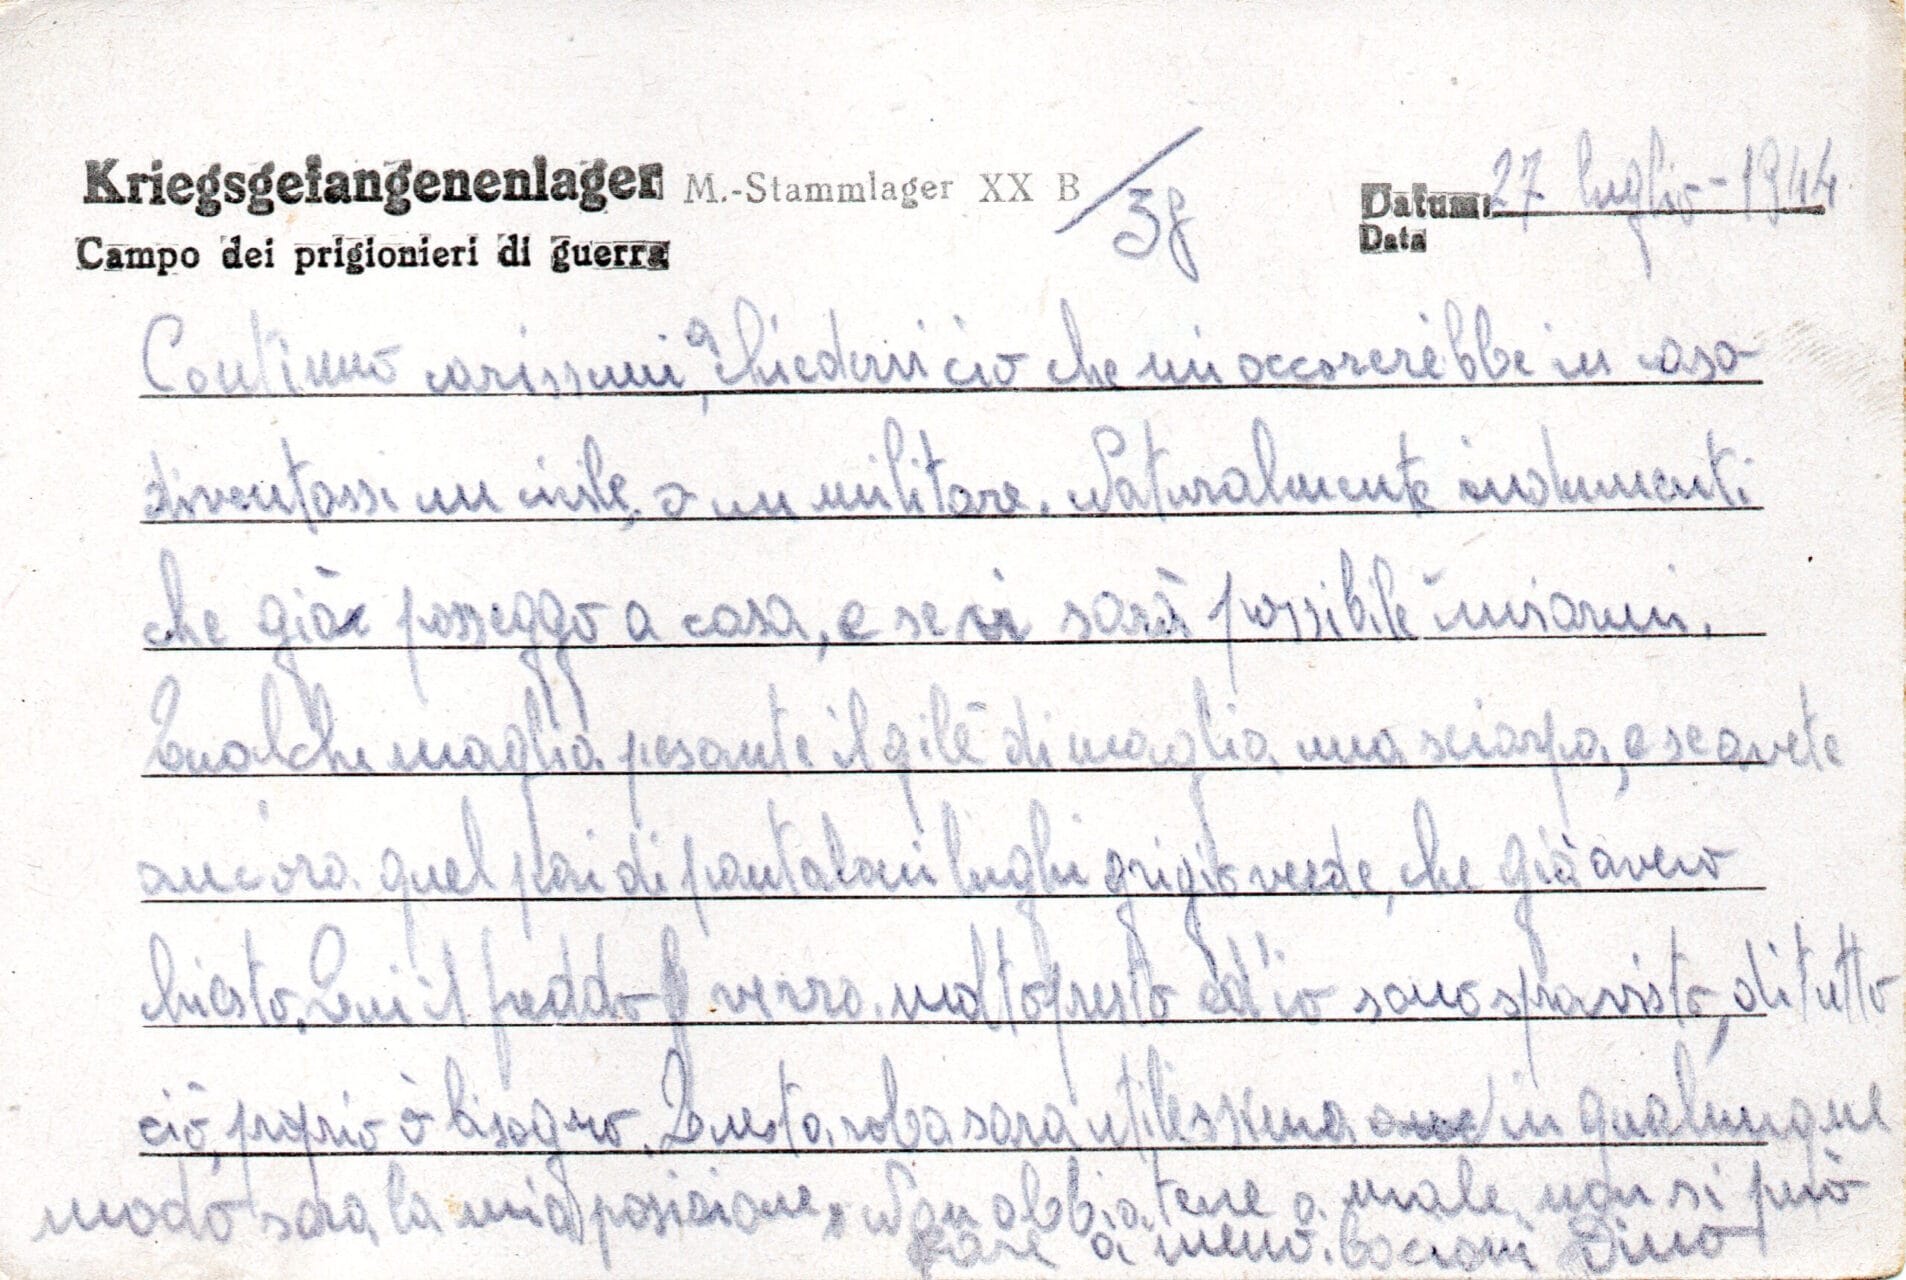 Kriegsgefangenenlager M.-Stammlager XX B / 38 Datum: 27 luglio - 1944
Campo dei prigionieri di guerra Data
Continuo carissimi, a chiedervi ciò che mi occorerebbe in caso
diventassi un civile, o un militare. Naturalmente indumenti
che già posseggo a casa, e se vi sarà possibile inviarmi.
Qualche maglia pesante il gilè di maglia una sciarpa, e se avete
ancora quel pai di pantaloni lunghi grigio verde, che già avevo
chiesto. Qui il freddo verra molto presto ed io sono sprovvisto, di tutto
ciò, proprio ò bisogno. Questa roba sara utilissima in qualunque
modo sara la mia posizione. Non abbiatene a male non si può
fare a meno. Bacioni Dino